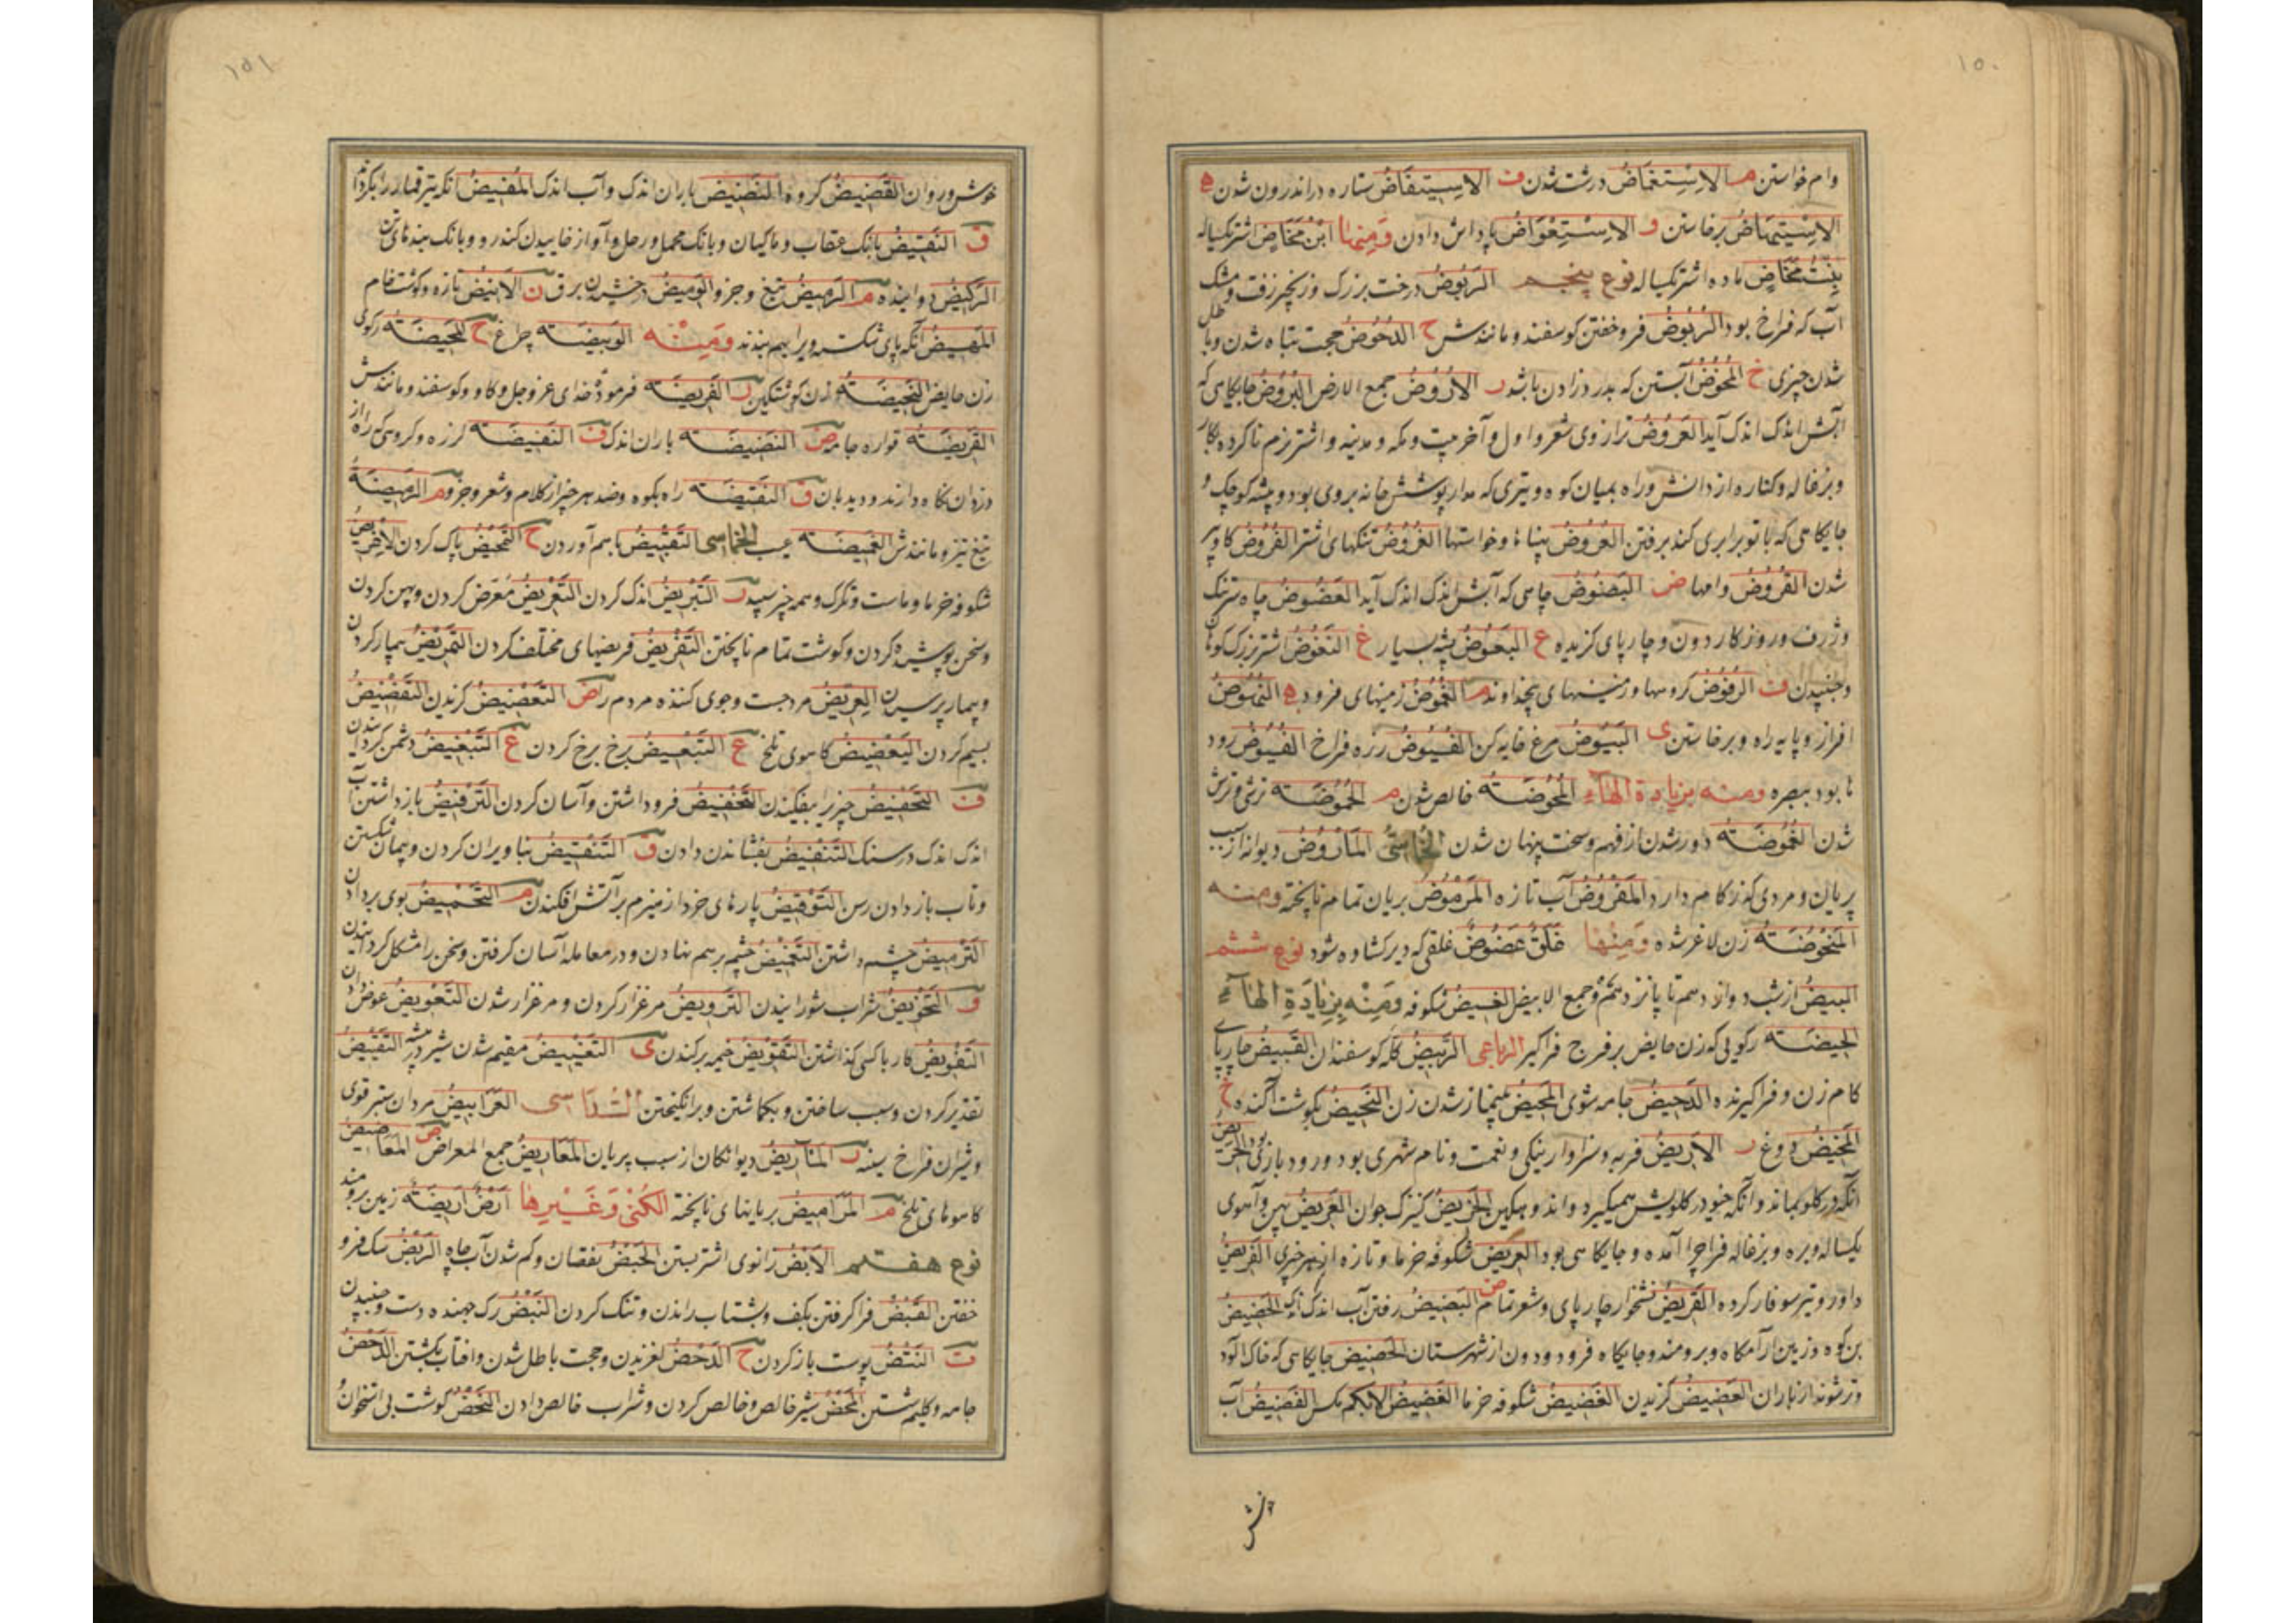 ۱۵۰
وام خواستن م الاِسْتِغمَاضُ درشت شدن ف الاِسْتِيفَاضُ ستاره دراندرون شدن ه
الاِسْتِنهَاضُ برخاستن و الاِسْتِعْوَاضُ پاداش دادن وَمِنهَا ابْنُ مَخَاضٍ اشتر یکساله
بِنْتُ مَخَاضٍ ماده اشتر یکساله نوع پنجم الرَبُوضُ درخت بزرک و زنجیر زفت و مشک
آب که فراخ بود الرُبُوضُ فروخفتن کوسفند و مانندش ح الدُحُوضُ حجت تباه شدن و باطل
شدن چیزی خ المَخُوضُ آبستن که بدرد زادن باشد ر الاُرُوضُ جمع الارض البَرُوضُ جایکاهی که
آبش اندک اندک آید العَرُوضُ ترازوی شعر و اول و آخر بیت و مکه و مدینه و اشتر نرم ناکرده بکار
وبزغاله و کناره از دانش و راه بمیان کوه و تیری که مدار پوشش خانه بروی بود و پیشه کوچک و
جایکاهی که با تو برابری کند برفتن العُرُوضُ پنبا ها و خواستها الغُرُوضُ تنکهای اشتر الفُرُوضُ کاو پیر
شدن القُرُوضُ وامها ض البَضُوضُ چاهی که آبش اندک اندک آید العَضُوضُ چاه ستنک
و ژرف و روزکار دون و چارپای کزنده ع البَعُوضُ پشه بسیار غ النَغُوضُ اشتر بزرک کوهان
وجنبیدن ف الرُفُوضُ کروهها و زمینهای بیخداوند م الغُمُوضُ زمینهای فرود ه النُهُوضُ
افراز و پایه راه و برخاستن ی البَيُوضُ مرغ خایه کن الفُيُوضُ زره فراخ الفُيُوضُ رود
ها بود ببصره ومنه بزیادة الهاءِ المُحُوضَةُ خالص شدن م الحُمُوضَةُ ترشی و ترش
شدن الغُمُوضَةُ دور شدن از فهم و سخت پنهان شدن الخُمَاسِىُّ المَأرُوضُ دیوانه از سبب
پریان و مردی که زکام دارد المَفرُوضُ آب تازه المَرمُوضُ بریان تمام ناپخته ومنه
المَنحُوضَةُ زن لاغر شده وَمِنْهَا غَلَقٌ عَضُوضٌ غلقی که دیر کشاده شود نوع ششم
البیضُ از شب دوازدهم تا پانزدهم و جمع الابیض الغَيضُ شکوفه وَمِنْهُ بِزِيَادَةِ الهَاءِ
الحِيضَةُ رکویی که زن حایض بر فرج فراکیرد الرباعی الرَبِيضُ کله کوسفندان القَبِيضُ چارپای
کام زن و فراکیرنده الدَحِيضُ جامه شوی المَحِيضُ بینماز شدن زن النَحِيضُ بکوشت آکنده خ
المَخِيضُ دوغ ر الاَرِيضُ فربه و سزاوار بنیکی و نعمت و نام شهری بود و رود بازی بود الجَرِيضُ
آنکه در کلو بماند و آنکه خیو در کلویش همیکیرد و اندوهکین الخَرِيضُ کنیزک جوان العَرِيضُ پهن و آهوی
یکساله و بره و بزغاله فراچرا آمده و جایکاهی بود الغَرِيضُ شکوفه خرما و تازه از هر چیزی الفَرِيضُ
داور و تیر سوفار کرده القَرِيضُ نشخوار چارپای و شعر تمام ض البَضِيضُ رفتن آب اندک اندک الحَضِيضُ
بن کوه و زمین آرامکاه و برومند و جایکاه فرود و دون از شهرستان الخَضِيضُ جایکاهی که خاک آلود
و تر شوند از باران العَضِيضُ کزیدن الغَضِيضُ شکوفه خرما الغَضِيضُ الابکم مکس الفَضِيضُ آب
خوش
۱۵۱
خوش و روان القَضِيضُ کروه النَضِيضُ باران اندک و آب اندک المُفِيضُ آنکه تیر قمار را بکرداند
ق النَقِيضُ بانک عقاب و ماکیان و بانک محمل و رحل و آواز خاییدن کندر و و بانک بندهای تن
الرَکِيضُ دوانیده م الرَمِيضُ تیغ و جزو الوَمِيضُ درخشیدن برق ن الاَنِيضُ تازه و کوشت خام
المَهِيضُ آنکه پای شکسته ویرا بهم بندند وَمِنْهُ الوَبِيضَةُ چراغ ح المَحِيضَةُ رکوی
زن حایض النَحِيضَةُ زن کوشتکین ر الفَرِيضَةُ فرمودهٔ خدای عز و جل و کاو و کوسفند و مانندش
القَرِيضَةُ قواره جامه ض النَضِيضَةُ باران اندک ف النَفِيضَةُ لرزه و کروهی که راه از
دزدان نکاه دارند و دیدبان ق النَقِيضَةُ راه بکوه و ضد هر چیز از کلام و شعر و جزو م الرَمِيضَةُ
تیغ تیز و مانندش الغَمِيضَةُ عیب الخماسی التَقبِيضُ باهم آوردن ح التَمحِيضُ پاک کردن الاِغرِيضُ
شکوفه خرما و ماست و تکرک و همه چیز سپید ر التَبرِيضُ اندک کردن التَعرِيضُ مَعرَض کردن و پهن کردن
و سخن پوشیده کردن و کوشت تمام ناپختن التَفرِيضُ فریضهای مختلف کردن التَمرِيضُ بیمار کردن
و بیمار پرسیدن العِرِّيضُ مرد جست و جوی کننده مردم را ض التَعضِيضُ کزیدن التَفضِيضُ
بسیم کردن اليَعضِيضُ کاهوی تلخ ع التَبعِيضُ برخ برخ کردن غ التَبغِيضُ دشمن کردانیدن
ف التَحفِيضُ چیز را بیفکندن التَخفِيضُ فرود داشتن و آسان کردن التَرفِيضُ باز داشتن آب
اندک اندک در سنک التَنفِيضُ بفشاندن دادن ق التَنقِيضُ بنا ویران کردن و پیمان شکستن
و تاب باز دادن رسن التَوقِيضُ پارهای خرد از هیزم بر آتش افکندن م التَحمِيضُ بوی بردادن
التَرمِيضُ چشم داشتن التَغمِيضُ چشم برهم نهادن و در معامله آسان کرفتن و سخن را مشکل کردانیدن
و التَخوِيضُ شراب شورانیدن التَروِيضُ مرغزار کردن و مرغزار شدن التَعوِيضُ عوض دادن
التَفوِيضُ کار با کسی کذاشتن التَقوِيضُ خیمه برکندن ی التَغيِيضُ مقیم شدن شیر در بیشه التَقيِيضُ
تقدیر کردن و سبب ساختن و بکماشتن و برانکیختن السُدَاسی العَرَابِيضُ مردان ستبر قوی
و شیران فراخ سینه ر المَآرِيضُ دیوانکان از سبب پریان المَعَارِيضُ جمع المعراض ض المَعَاضِيضُ
کاهوهای تلخ م المَرَامِيضُ بریانهای ناپخته الکُنٰی وَغَيرِهَا اَرضٌ اَرِيضَةٌ زمین برومند
نوع هفتم الاَبضُ زانوی اشتر بستن الحَبضُ نقصان و کم شدن آب چاه الرَبضُ سک فرو
خفتن القَبضُ فراکرفتن بکف و بشتاب راندن و تنک کردن النَبضُ رک جهنده دست و جنبیدن
ت النَتضُ پوست باز کردن ح الدَحضُ لغزیدن و حجت باطل شدن و افتاب بکشتن الرَحضُ
جامه و کلیم شستن المَحضُ شیر خالص و خالص کردن و شراب خالص دادن النَحضُ کوشت بی استخوان و